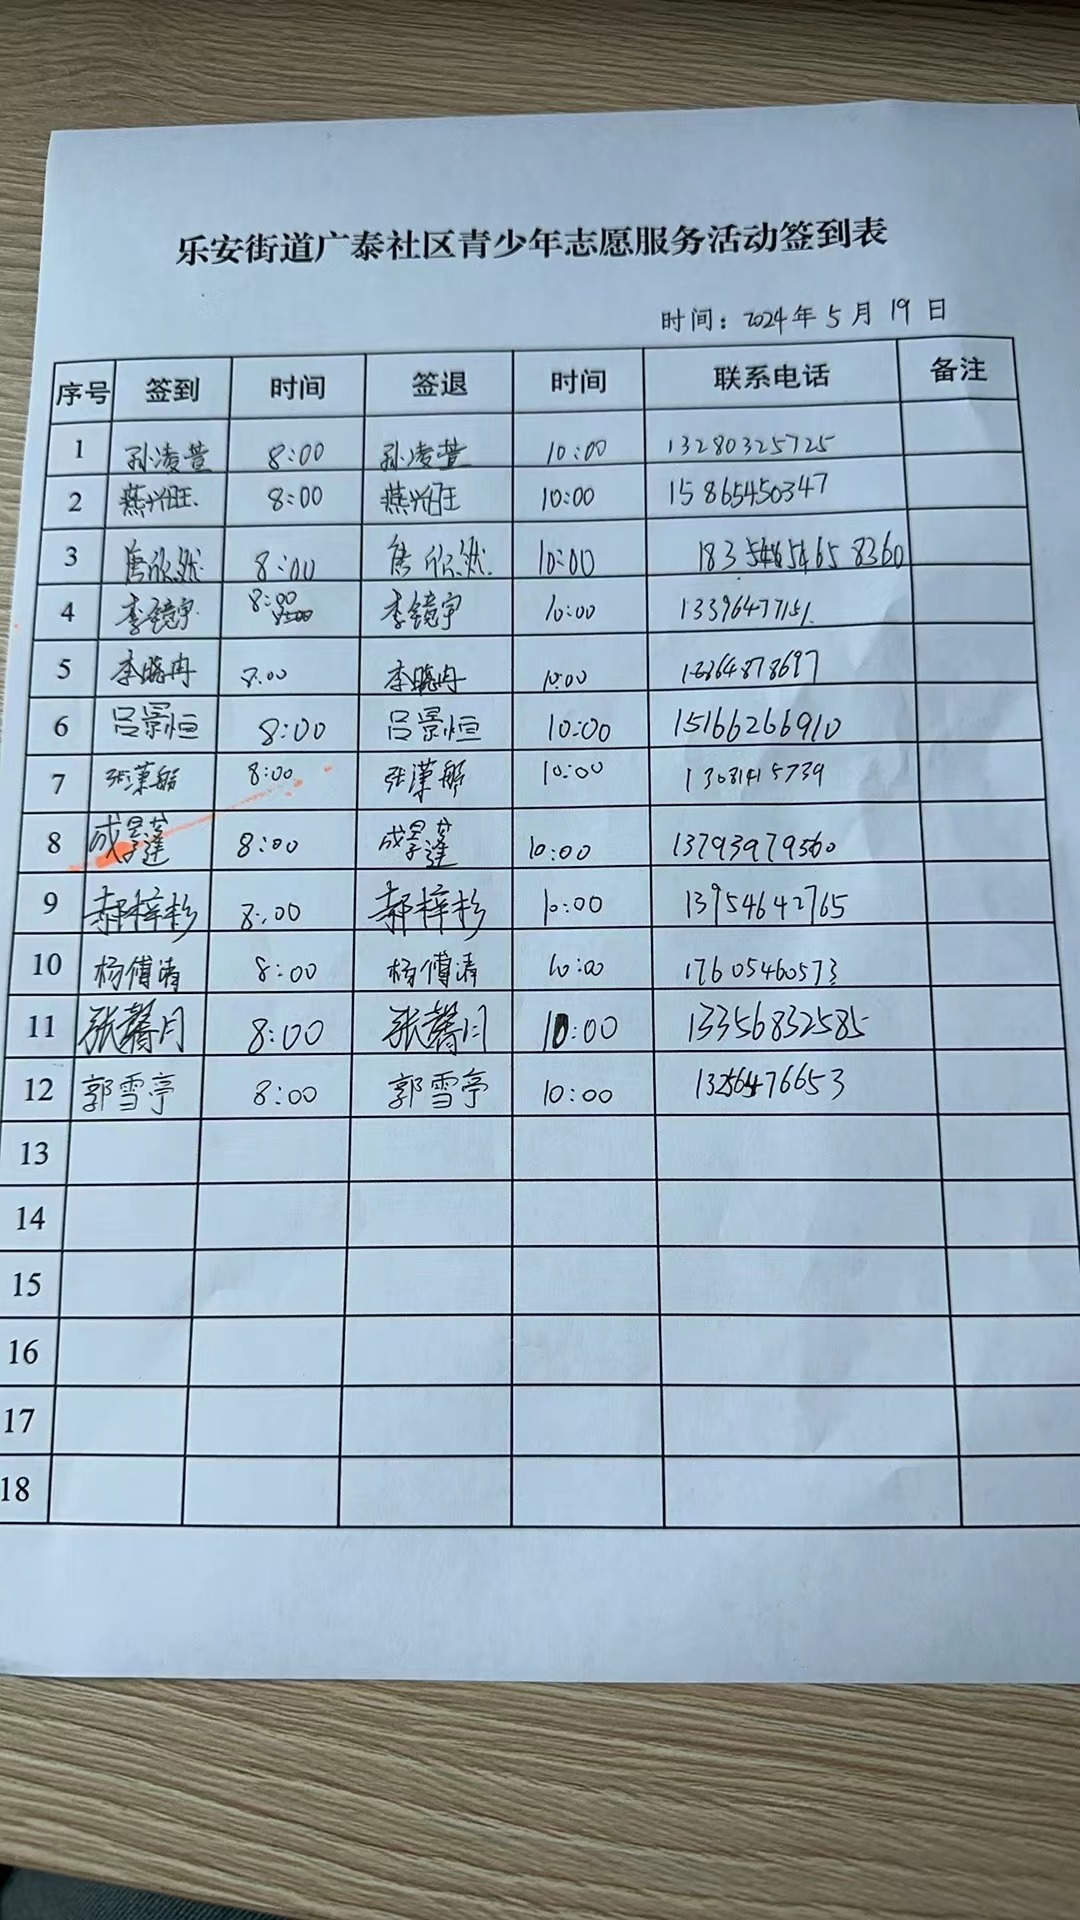 乐安街道广泰社区青少年志愿服务活动签到表
时间：2024年5月19日
序号 签到 时间 签退 时间 联系电话 备注
1 孙凌萱 8:00 孙凌萱 10:00 13280325725
2 燕兴旺 8:00 燕兴旺 10:00 15865450347
3 唐欣然 8:00 唐欣然 10:00
4 李镜宇 8:00 李镜宇 10:00 13396477151
5 李晓冉 8:00 李晓冉 10:00
6 吕景恒 8:00 吕景恒 10:00 15166266910
7 张潇艀 8:00 张潇艀 10:00
8 成 8:00 成 10:00 13793979560
9 郝梓杉 8:00 郝梓杉 10:00 13954642765
10 杨傅清 8:00 杨傅清 10:00 17605460573
11 张馨月 8:00 张馨月 10:00 13356832585
12 郭雪亭 8:00 郭雪亭 10:00 13256476653
13
14
15
16
17
18